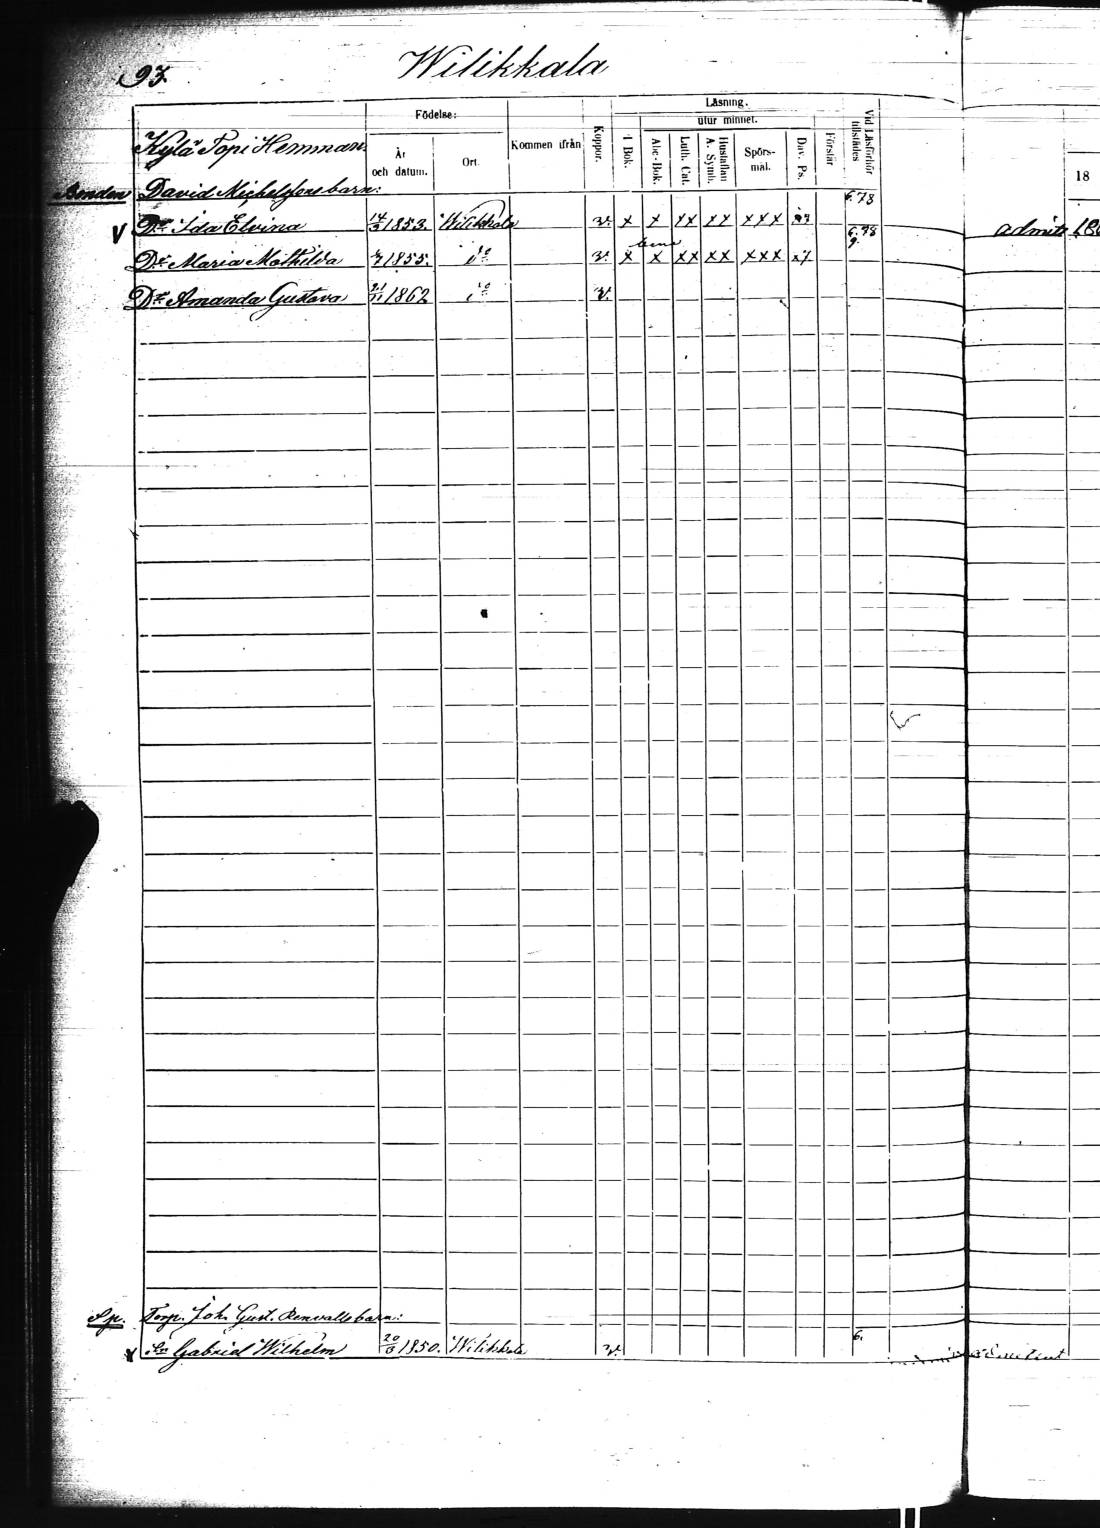 93. Wilikkala
Födelse: Läsning.
Kylä Topi Hemman. År och datum. Ort. Kommen ifrån Koppor. I Bok. utur minnet. Abc-Bok. Luth. Cat. Hustaflan A. Symb. Spörs-mål. Dav. Ps. Förstår Vid Läsförhör tillstädes 18
Bonden David Michelssons barn: 6. 78
V Dr Ida Elvina 14/3 1853. Wilikkala v. x x xx xx xxx x7 6. 78 9. admitt
Dr Maria Mathilda 1855. do v. x x xx xx xxx x7
Dr Amanda Gustava 21/11 1862 do v.
Sp. Torp. Joh. Gust. Renvalls barn:
x Sn Gabriel Wilhelm 1850. Wilikkala v. 6.